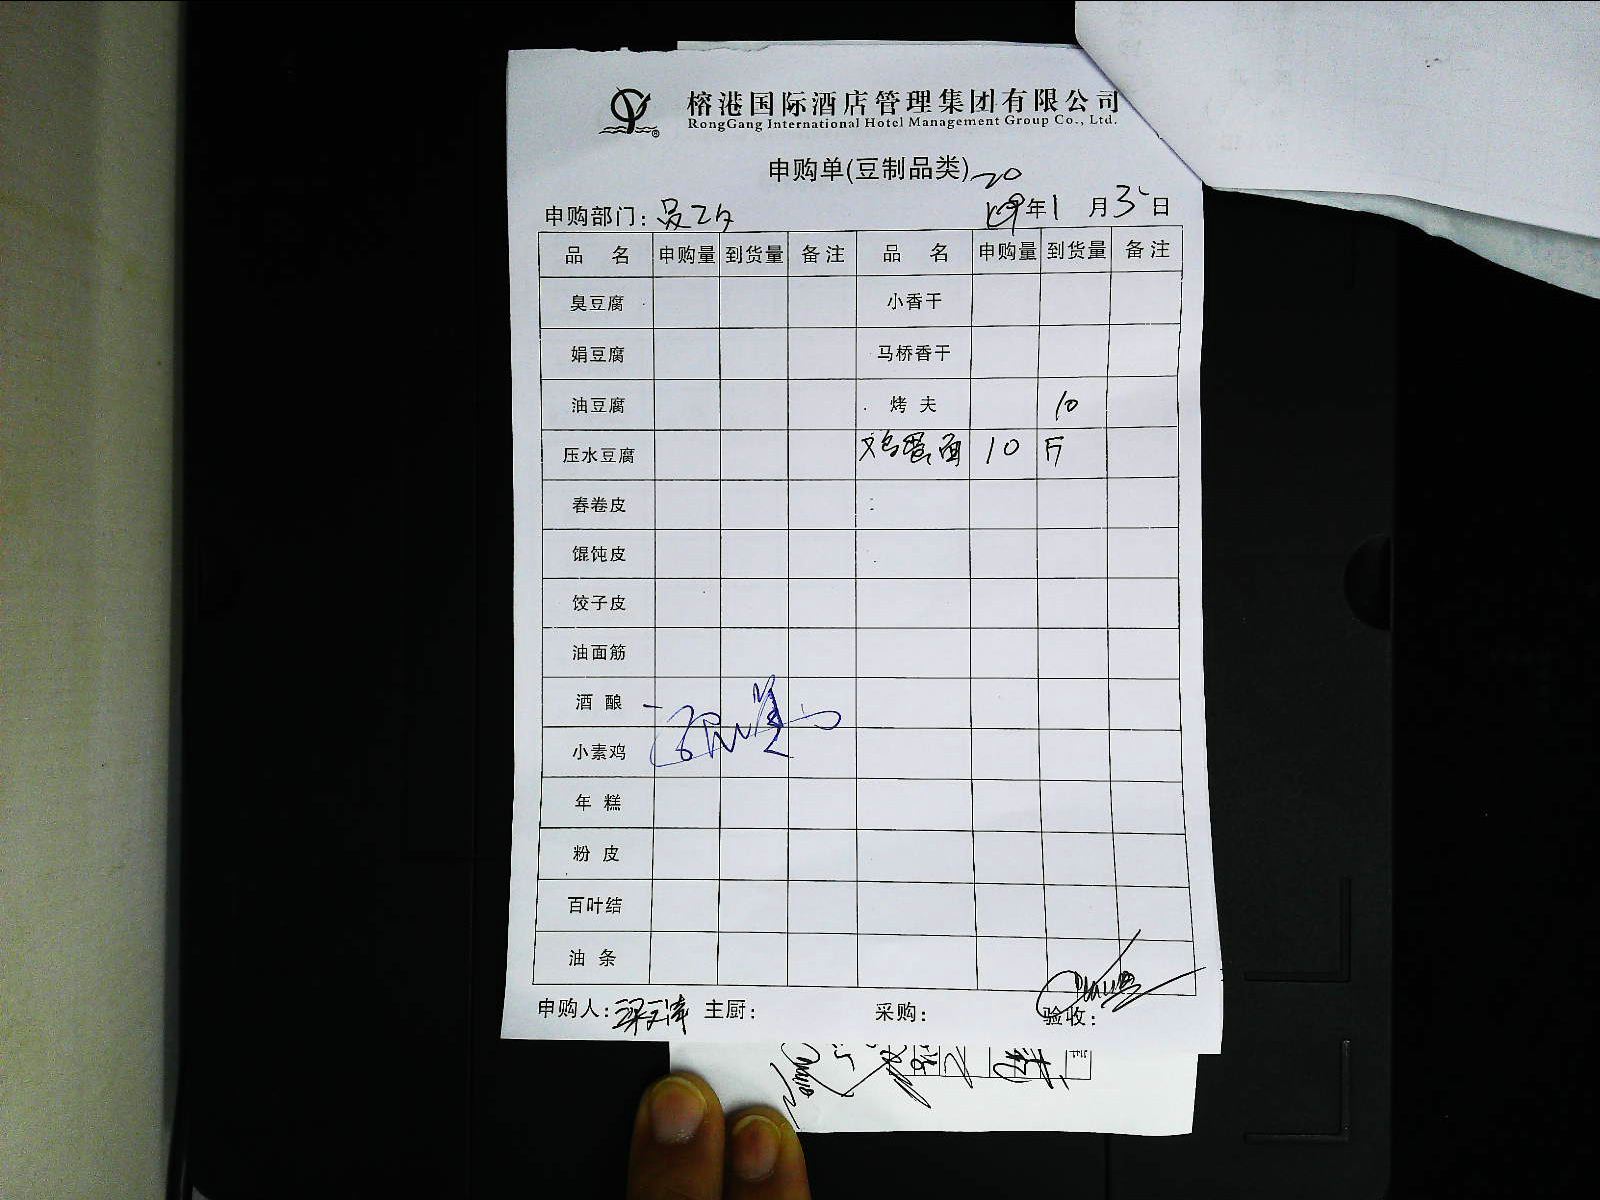 榕港国际酒店管理集团有限公司
RongGang International Hotel Management Group Co., Ltd.
申购单(豆制品类)
20
申购部门: 员工 年 1 月 3 日
品 名 申购量 到货量 备注 品 名 申购量 到货量 备注
臭豆腐 小香干
娟豆腐 马桥香干
油豆腐 烤 夫 10
压水豆腐 鸡蛋面 10 斤
春卷皮
馄饨皮
饺子皮
油面筋
酒 酿
小素鸡
年 糕
粉 皮
百叶结
油 条
申购人: 主厨: 采购: 验收: